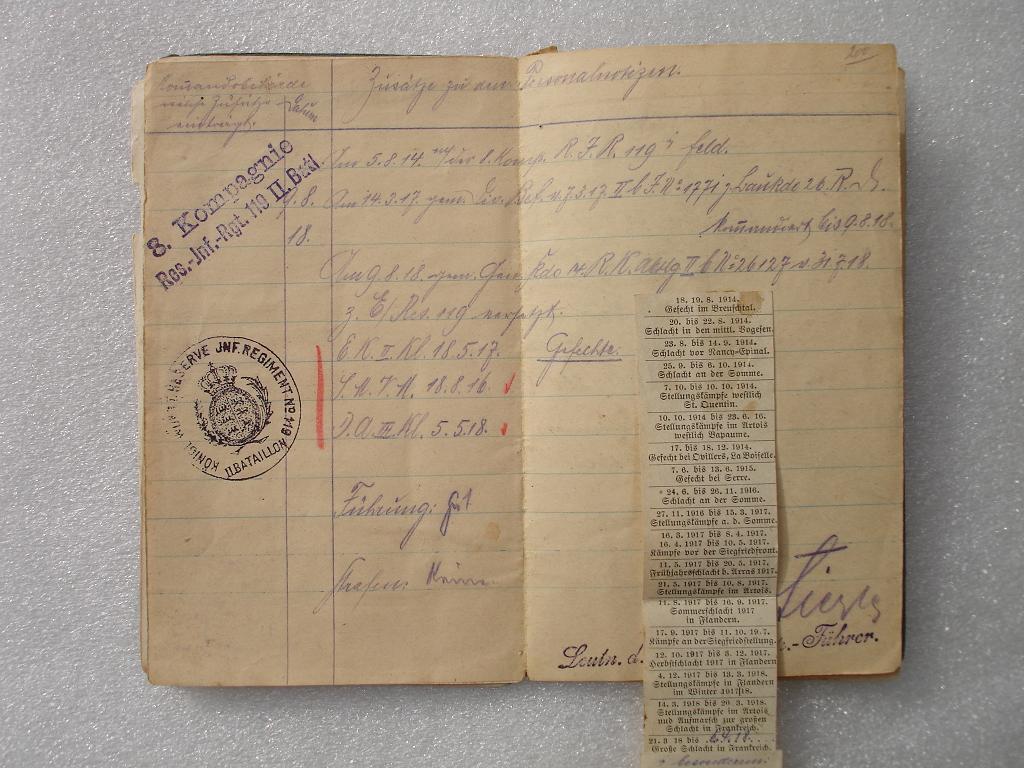 Kommandobehörde
welche Zusätze
einträgt.
Datum
Zusätze zu den Personalnotizen.
8. Kompagnie
Res.-Inf.-Rgt. 119 II. Batl
9.8.
18.
Am 5.8.14. mit der 8. Komp. R. I. R. 119 i feld.
Am 14.3.17. gem. Div. Bef. v. 7.3.17. II b J. No 1771 z. Baukdo 26. R. D.
kommandiert bis 9.8.18.
Am 9.8.18. gem. Gen. Kdo 14. R. K. II b No 26127 v. 31.7.18.
z. E/Res. 119 versetzt.
E K. II. Kl. 18.5.17.
S. M. V. M. 18.8.16.
D. A. III. Kl. 5.5.18.
Gefechte:
KÖNIGL. WÜRTT. RESERVE INF. REGIMENT No 119
II. BATAILLON
Führung: Gut
Strafen: Keine
18. 19. 8. 1914.
Gefecht im Breuschtal.
20. bis 22. 8. 1914.
Schlacht in den mittl. Vogesen.
23. 8. bis 14. 9. 1914.
Schlacht vor Nancy-Epinal.
25. 9. bis 6. 10. 1914.
Schlacht an der Somme.
7. 10. bis 10. 10. 1914.
Stellungskämpfe westlich
St. Quentin.
10. 10. 1914 bis 23. 6. 16.
Stellungskämpfe im Artois
westlich Bapaume.
17. bis 18. 12. 1914.
Gefecht bei Ovillers, La Boiselle.
7. 6. bis 13. 6. 1915.
Gefecht bei Serre.
24. 6. bis 26. 11. 1916.
Schlacht an der Somme.
27. 11. 1916 bis 15. 3. 1917.
Stellungskämpfe a. d. Somme.
16. 3. 1917 bis 8. 4. 1917.
16. 4. 1917 bis 10. 5. 1917.
Kämpfe vor der Siegfriedfront.
11. 5. 1917 bis 20. 5. 1917.
Frühjahrsschlacht b. Arras 1917.
21. 5. 1917 bis 10. 8. 1917.
Stellungskämpfe im Artois.
11. 8. 1917 bis 16. 9. 1917.
Sommerschlacht 1917
in Flandern.
17. 9. 1917 bis 11. 10. 19.7.
Kämpfe an der Siegfriedstellung.
12. 10. 1917 bis 3. 12. 1917.
Herbstschlacht 1917 in Flandern
4. 12. 1917 bis 13. 3. 1918.
Stellungskämpfe in Flandern
im Winter 1917/18.
14. 3. 1918 bis 20. 3. 1918.
Stellungskämpfe im Artois
und Aufmarsch zur großen
Schlacht in Frankreich.
21. 3 18 bis 6.4.18.
Große Schlacht in Frankreich.
Leutn. d.
.-Führer.